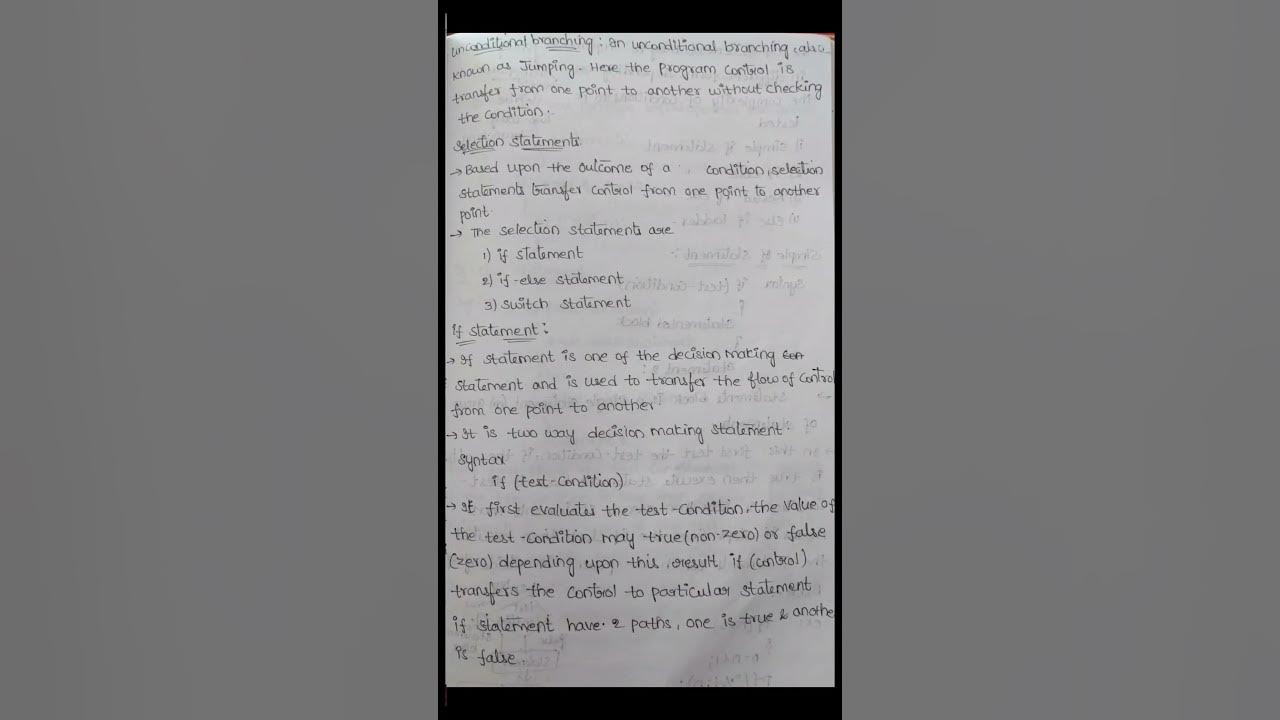 unconditional branching : an unconditional branching, also
known as Jumping. Here the program control is
transfer from one point to another without checking
the condition.
selection statements
→ Based upon the outcome of a condition, selection
statements transfer control from one point to another
point.
→ The selection statements are
1) if statement
2) if-else statement
3) switch statement
if statement :
→ If statement is one of the decision making
statement and is used to transfer the flow of control
from one point to another.
→ It is two way decision making statement.
syntax
if (test-condition)
→ It first evaluates the test-condition, the value of
the test-condition may true (non-zero) or false
(zero) depending upon this result if (control)
transfers the control to particular statement
if statement have 2 paths, one is true & anothe
is false.